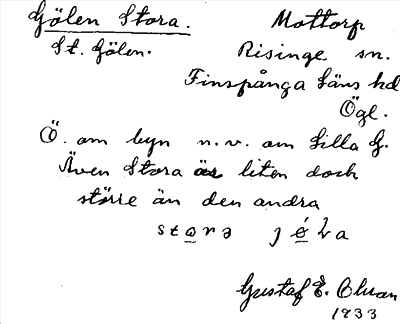 Gölen Stora.
Mottorp
St. Gölen.
Risinge sn.
Finspånga läns hd
Ögl.
Ö. om byn n.v. om Lilla G.
Även Stora är liten doch
större än den andra
Gustaf E. Olsson
1933